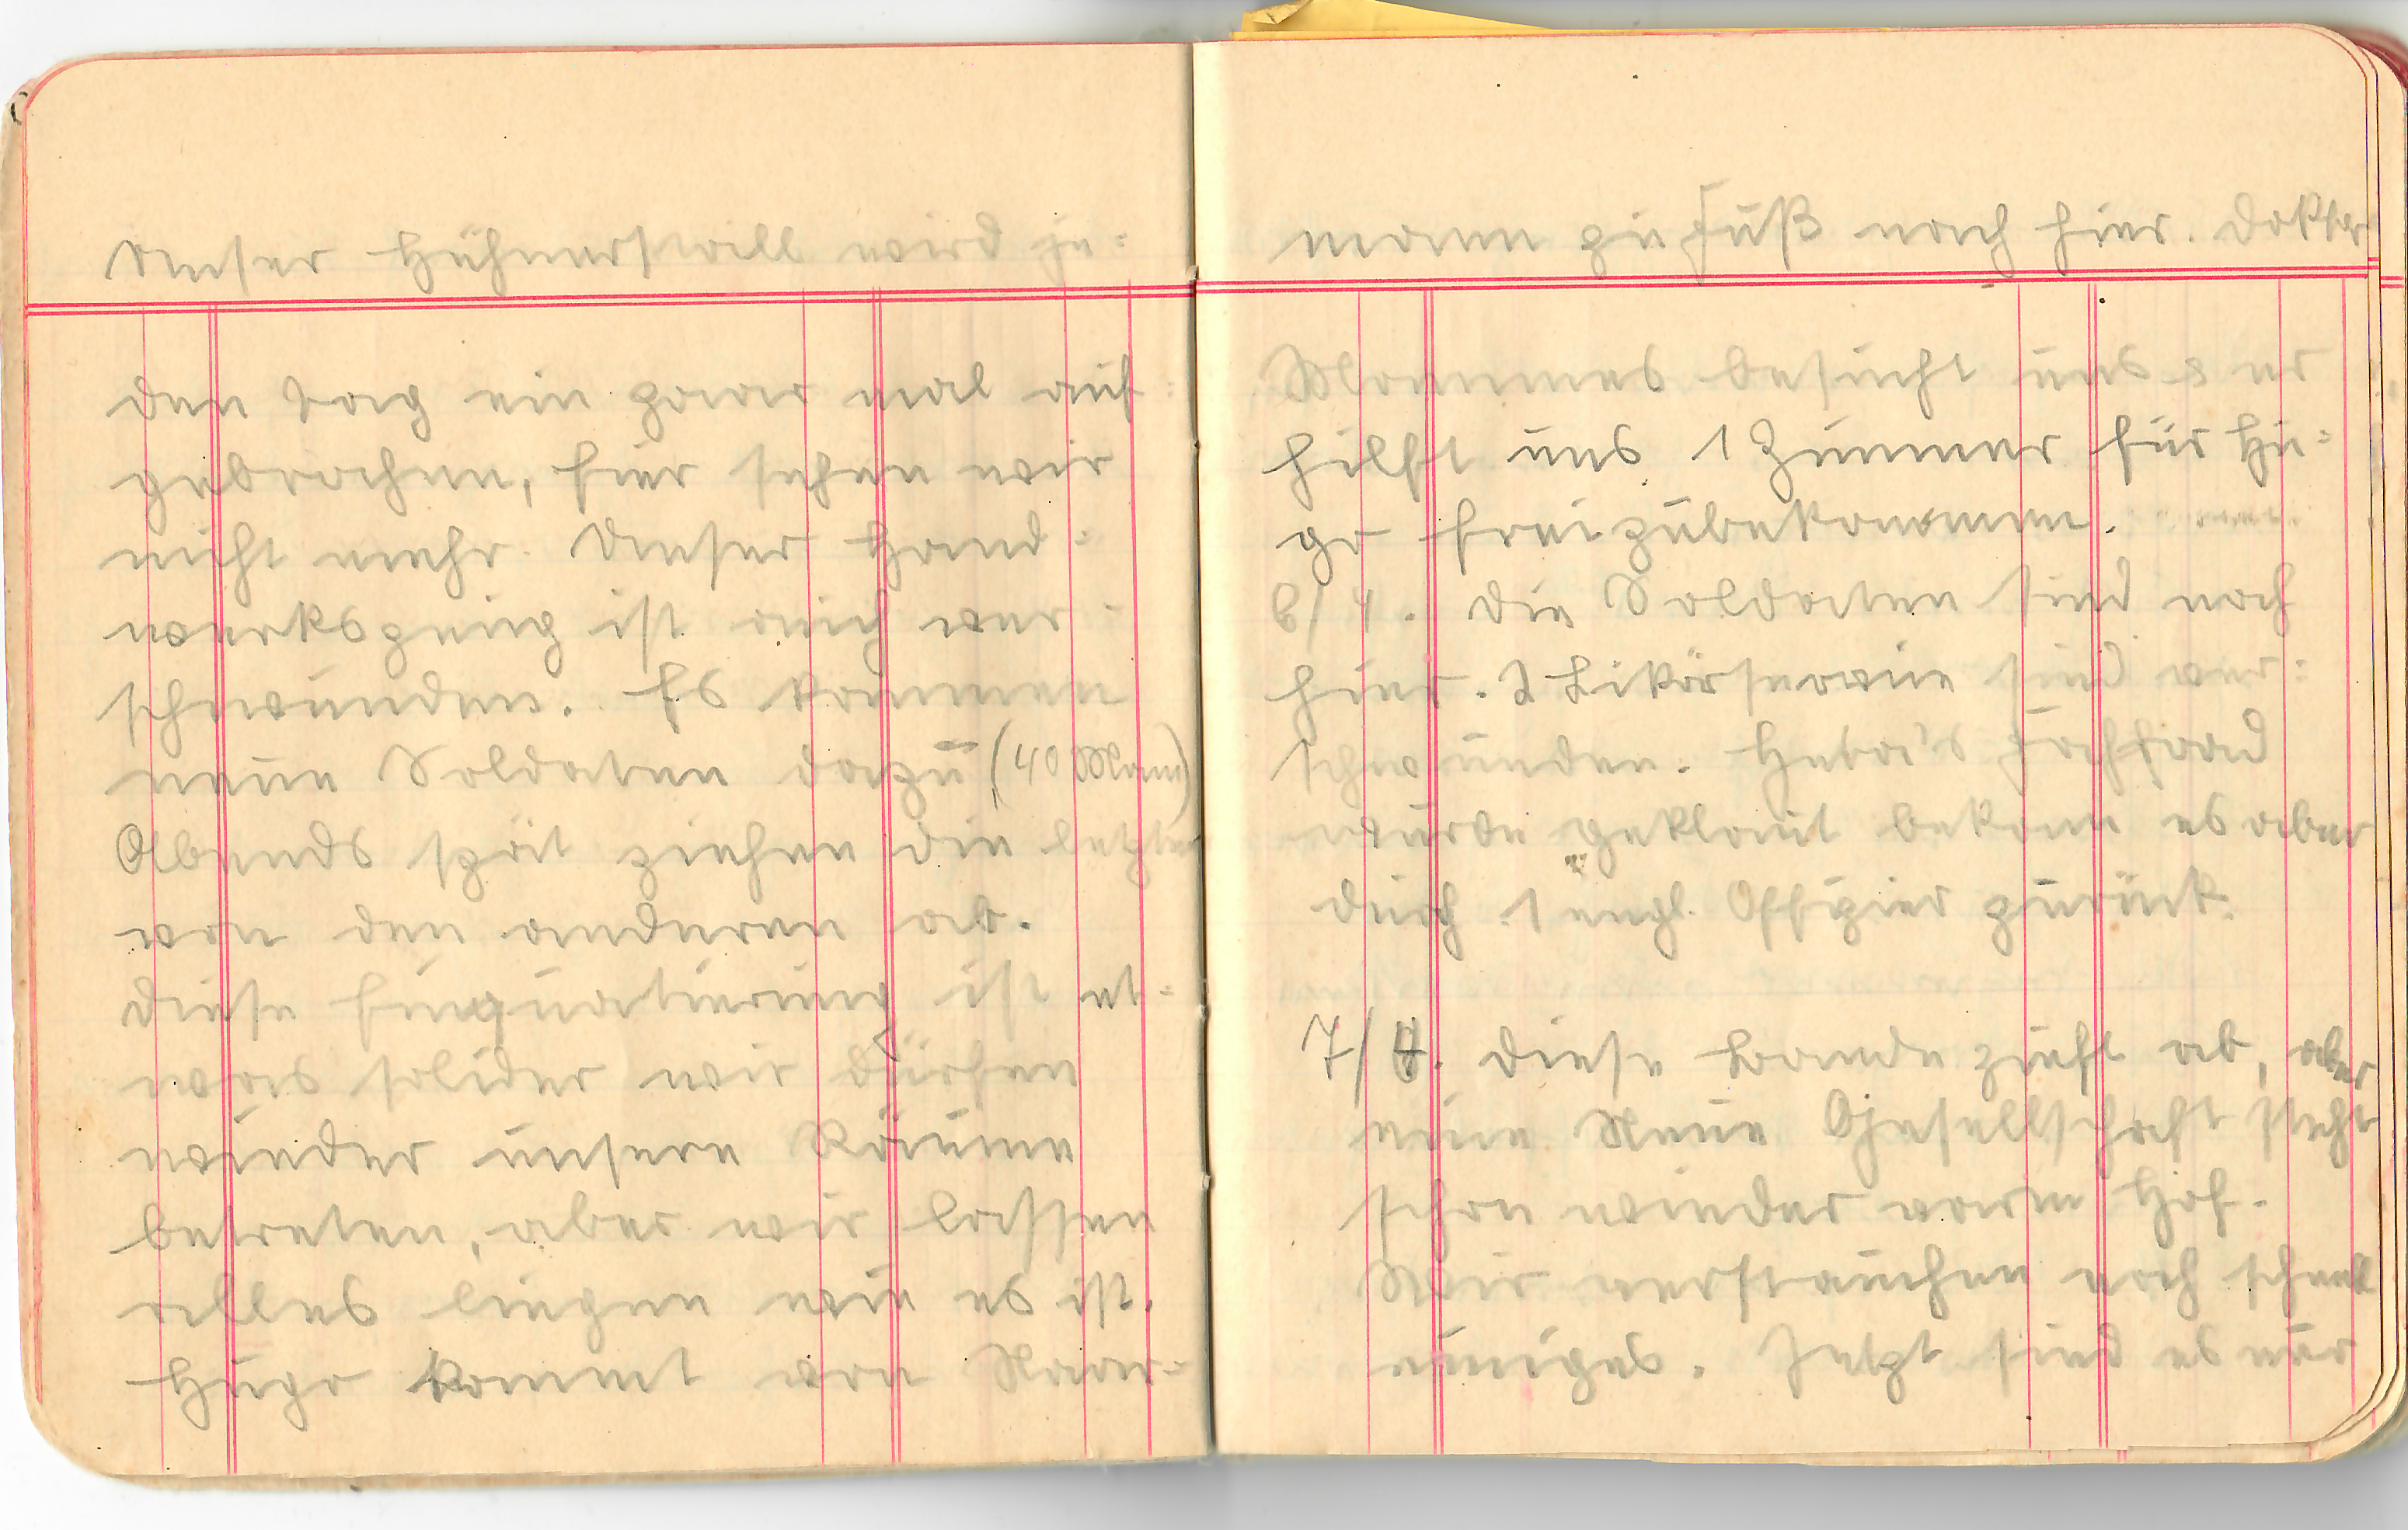 Unser Hühnerstall wird je=
den Tag ein paar mal auf=
gebrochen, hier sehen wir
nicht mehr. Unser Hand=
werkszeug ist auch ver=
schwunden. Es kommen
neue Soldaten dazu (40 Mann)
Abends spät ziehen die letzten
von den anderen ab.
Diese Einquatierung ist et=
was solider wir dürfen
wieder unsere Räume
betreten, aber wir lassen
alles liegen wie es ist.
Hugo kommt von
mann zu Fuß nach hier. Doktor
besucht uns & er
hilft uns 1 Zimmer für Hu=
go freizubekommen.
6/4. Die Soldaten sind noch
hier. 2 Likörservice sind ver=
schwunden. Fahrrad
wurde geklaut bekam es aber
durch 1 engl. Offizier zurück.
7/4. Diese Bande zieht ab, aber
eine Neue Gesellschaft steht
schon wieder vorm Hof.
Wir verstauchen noch schnell
einiges. Jetzt sind es nur